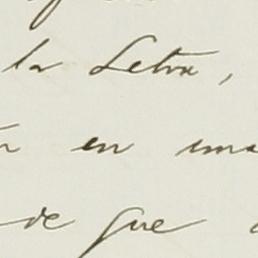 la Letra,
en una
de que